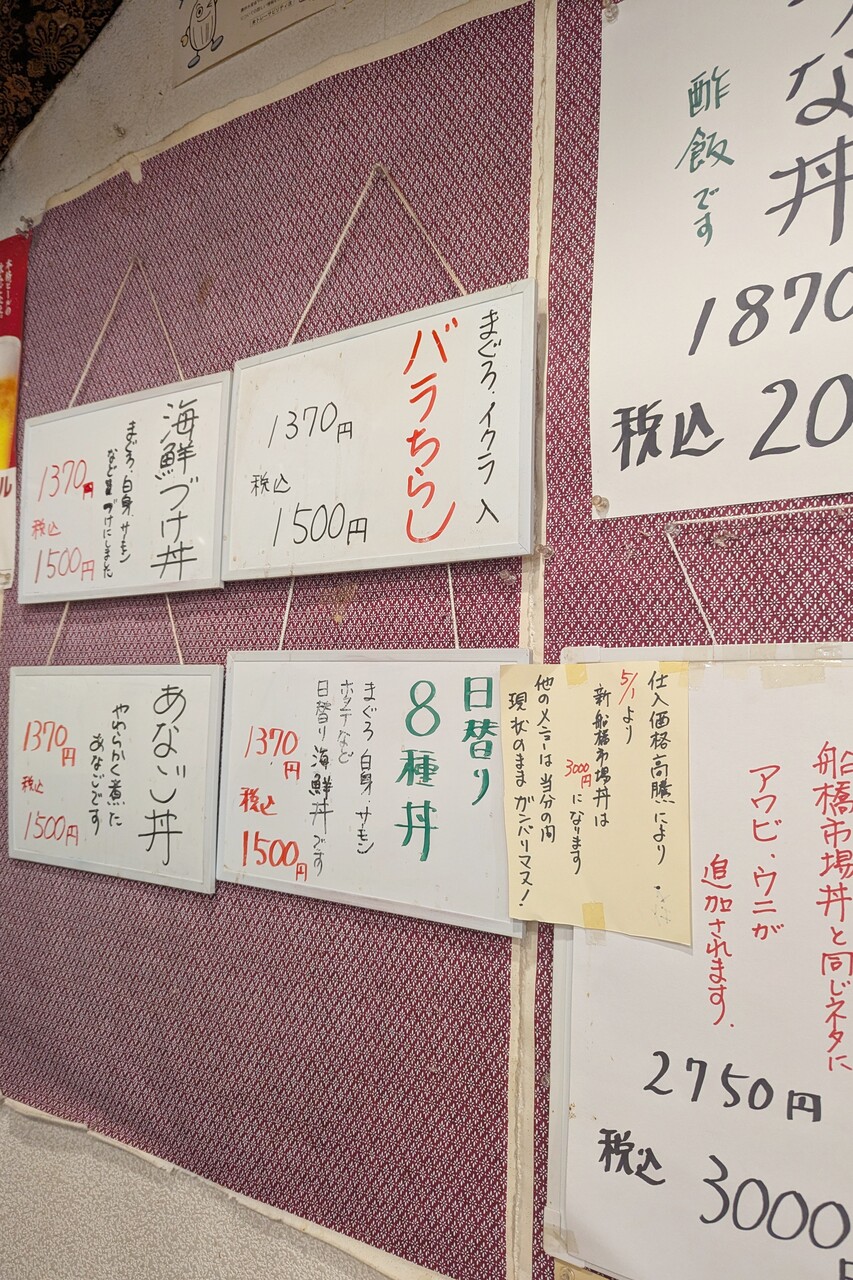 な丼
酢飯です
1870
税込 20
まぐろ・イクラ 入
バラちらし
1370円
税込
1500円
海鮮づけ丼
まぐろ・白身・サーモン
などをづけにしました
1370円
税込
1500円
船橋市場丼と同じネタに
アワビ、ウニが
追加されます.
2750円
税込
3000
仕入価格高騰により、
5/1より
新船橋市場丼は
3000円になります
他のメニューは当分の間
現状のままガンバリマス!
日替り
8種丼
まぐろ 白身・サーモン
ホタテなど
日替り海鮮丼です
1370円
税込
1500円
あなご丼
やわらかく煮た
あなごです
1370円
税込
1500円
ル